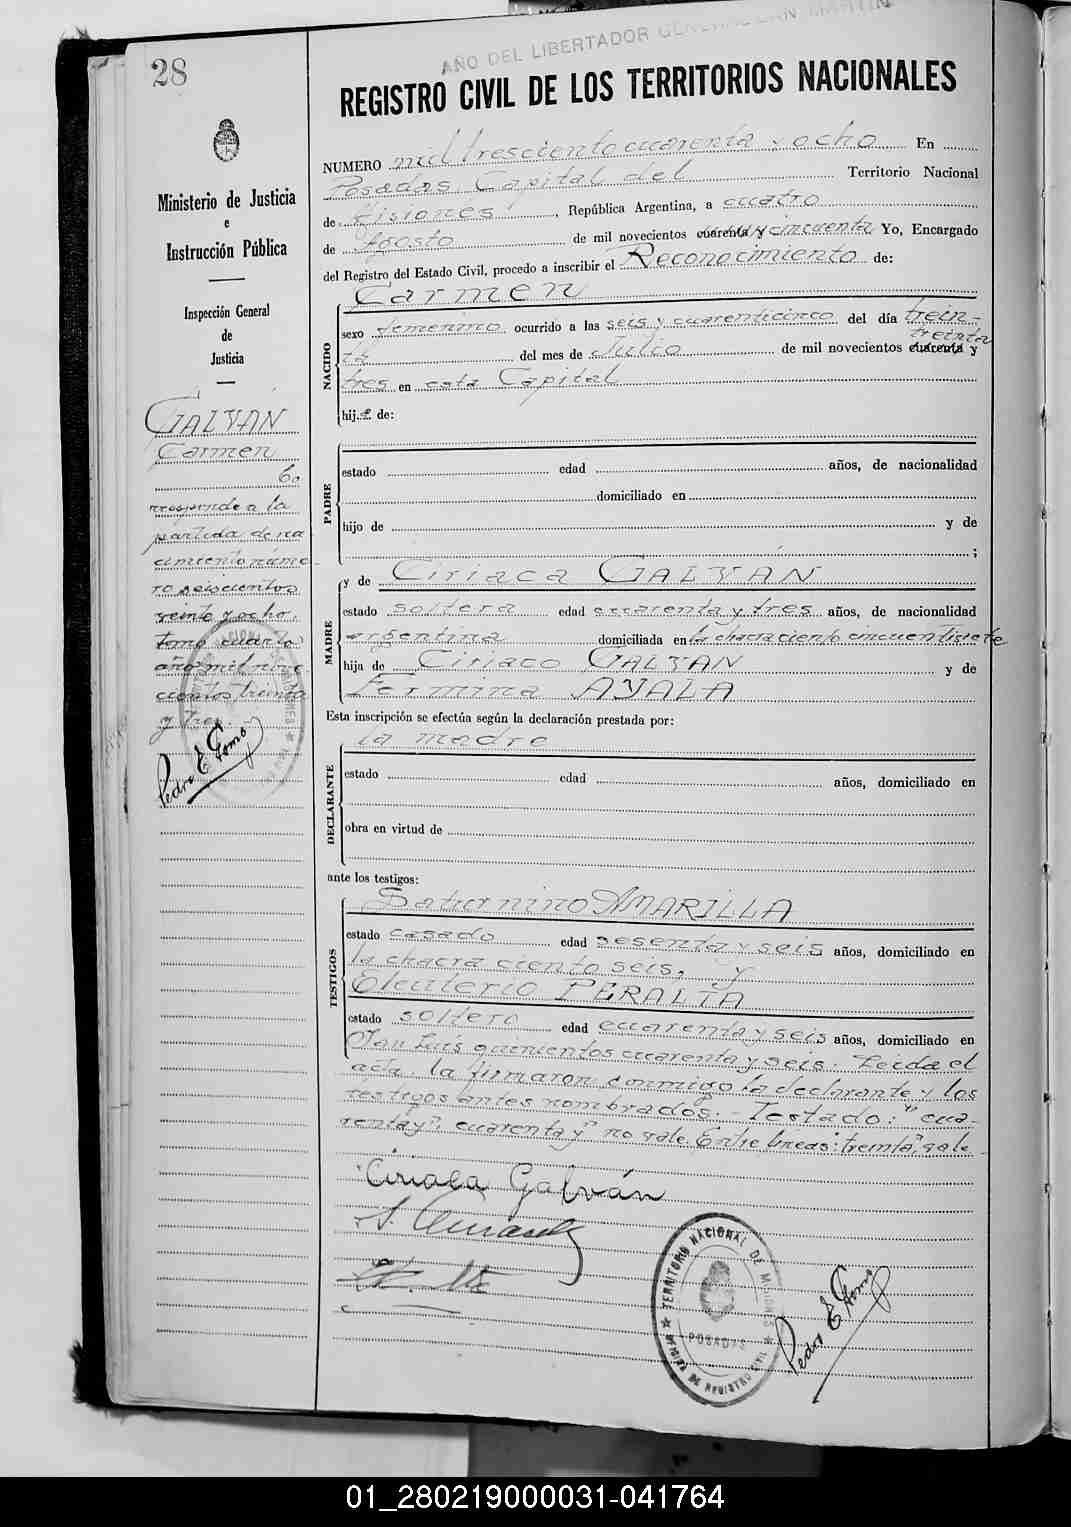 AÑO DEL LIBERTADOR GENERAL SAN MARTIN
28
REGISTRO CIVIL DE LOS TERRITORIOS NACIONALES
Ministerio de Justicia
e
Instrucción Pública
Inspección General
de
Justicia
GALVAN
Carmen
Co
rresponde a la
partida de na
cimiento núme
ro seiscientos
veinte y ocho,
tomo cuarto
año mil nove
cientos treinta
y tres.
Pedro E Gomo
NUMERO mil trescientos cuarenta y ocho En
Posadas, Capital del Territorio Nacional
de Misiones, República Argentina, a cuatro
de Agosto de mil novecientos cuarenta y cincuenta Yo, Encargado
del Registro del Estado Civil, procedo a inscribir el Reconocimiento de:
NACIDO
Carmen
sexo femenino ocurrido a las seis y cuarenticinco del día trein-
treinta
ta del mes de Julio de mil novecientos cuarenta y
tres en esta Capital
hija de:
PADRE
estado edad años, de nacionalidad
domiciliado en
hijo de y de
;
MADRE
y de Ciriaca GALVAN
estado soltera edad cuarenta y tres años, de nacionalidad
argentina domiciliada en la chacra ciento cincuentisiete
hija de Ciriaco GALVAN y de
Fermina AYALA
Esta inscripción se efectúa según la declaración prestada por:
DECLARANTE
la madre
estado edad años, domiciliado en
obra en virtud de
ante los testigos:
TESTIGOS
Saturnino AMARILLA
estado casado edad sesenta y seis años, domiciliado en
la chacra ciento seis, y
Eleuterio PERALTA
estado soltero edad cuarenta y seis años, domiciliado en
San Luis quinientos cuarenta y seis. Leida el
acta, la firmaron conmigo la declarante y los
testigos antes nombrados.- Testado: "cua-
renta y", cuarenta y" no vale. Entre líneas: treinta", vale
Ciriaca Galván
TERRITORIO NACIONAL DE MISIONES
POSADAS
OFICINA DE REGISTRO CIVIL
Pedro E Gomo
01_280219000031-041764